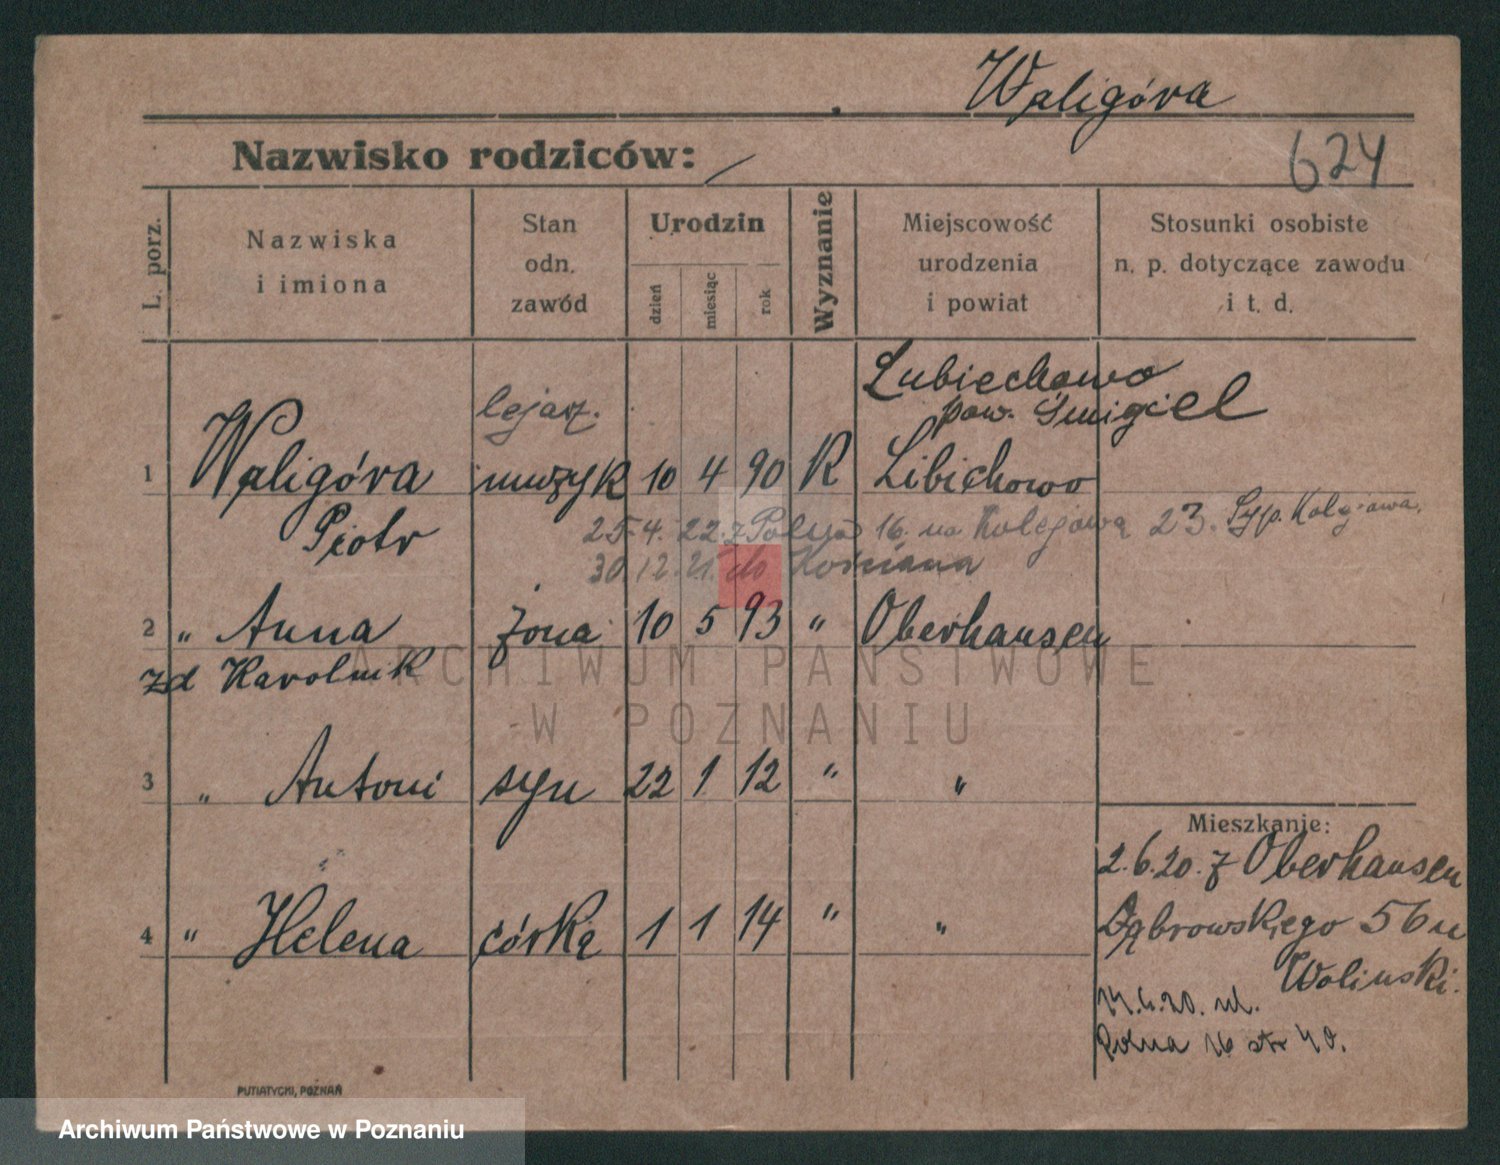 Waligóra
Nazwisko rodziców: /
624
L. porz.
Nazwiska
i imiona
Stan
odn.
zawód
Urodzin
dzień
miesiąc
rok
Wyznanie
Miejscowość
urodzenia
i powiat
Stosunki osobiste
n. p. dotyczące zawodu
i t. d.
Lubiechowo
pow. Śmigiel
1 Waligóra muzyk 10 4 90 R Libichowo
Piotr
25.4.22. z Polna 16. na Kolejową 23.
30.12.21. do Kościana
2 " Anna żona 10 5 93 " Oberhausen
zd Karolnik
3 " Antoni syn 22 1 12 " "
4 " Helena córka 1 1 14 " "
Mieszkanie:
2.6.20. z Oberhausen
Dąbrowskiego 56 u
Woliński.
14.6.20. ul.
Polna 16 str 40.
PUTIATYCKI, POZNAŃ
ARCHIWUM PAŃSTWOWE
W POZNANIU
Archiwum Państwowe w Poznaniu